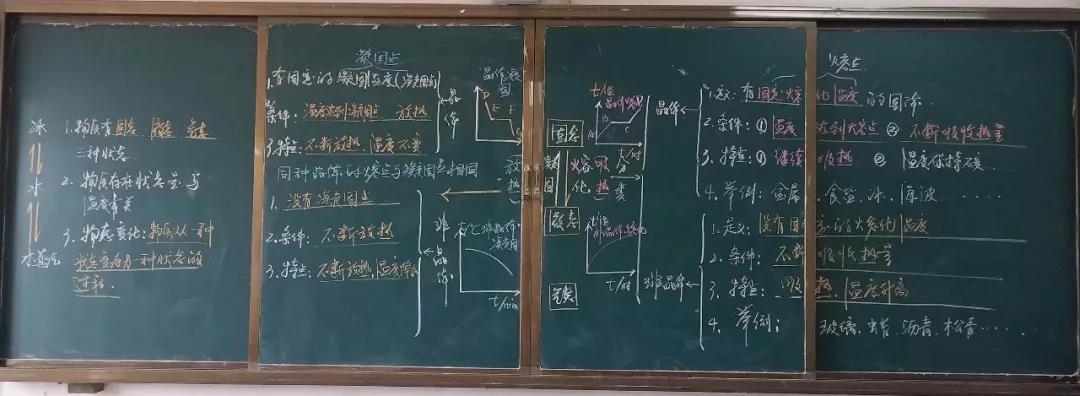 冰
水
水蒸气
1. 物质有固态 液态 气态
三种状态
2. 物质存在状态是与
温度有关
3. 物态变化：物质从一种
状态变为另一种状态的
过程.
凝固点
1. 有固定的凝固温度(凝固点)
条件：温度达到凝固点 放热
3. 特点：不断放热 温度不变
同种晶体的熔点与凝固点相同
晶体
晶体凝固
D
E
F
G
1. 没有凝固点
2. 条件：不断放热
3. 特点：不断放热 温度降低
非晶体
t/℃ 非晶体
凝固
t/min
放热
固态
凝固
熔化
吸热
液态
气态
分类
t/℃
晶体熔化
A
B
C
t/时
t/℃
非晶体熔化
t/时
晶体
非晶体
熔点
1. 定义：有固定熔化温度的固体.
2. 条件：① 温度达到熔点 ② 不断吸收热量
3. 特点：① 继续吸热 ② 温度保持不变
4. 举例：金属、食盐、冰、海波......
1. 定义：没有固定的熔化温度
2. 条件：不断吸收热量
3. 特点：吸热，温度升高
4. 举例：玻璃、蜡、沥青、松香......